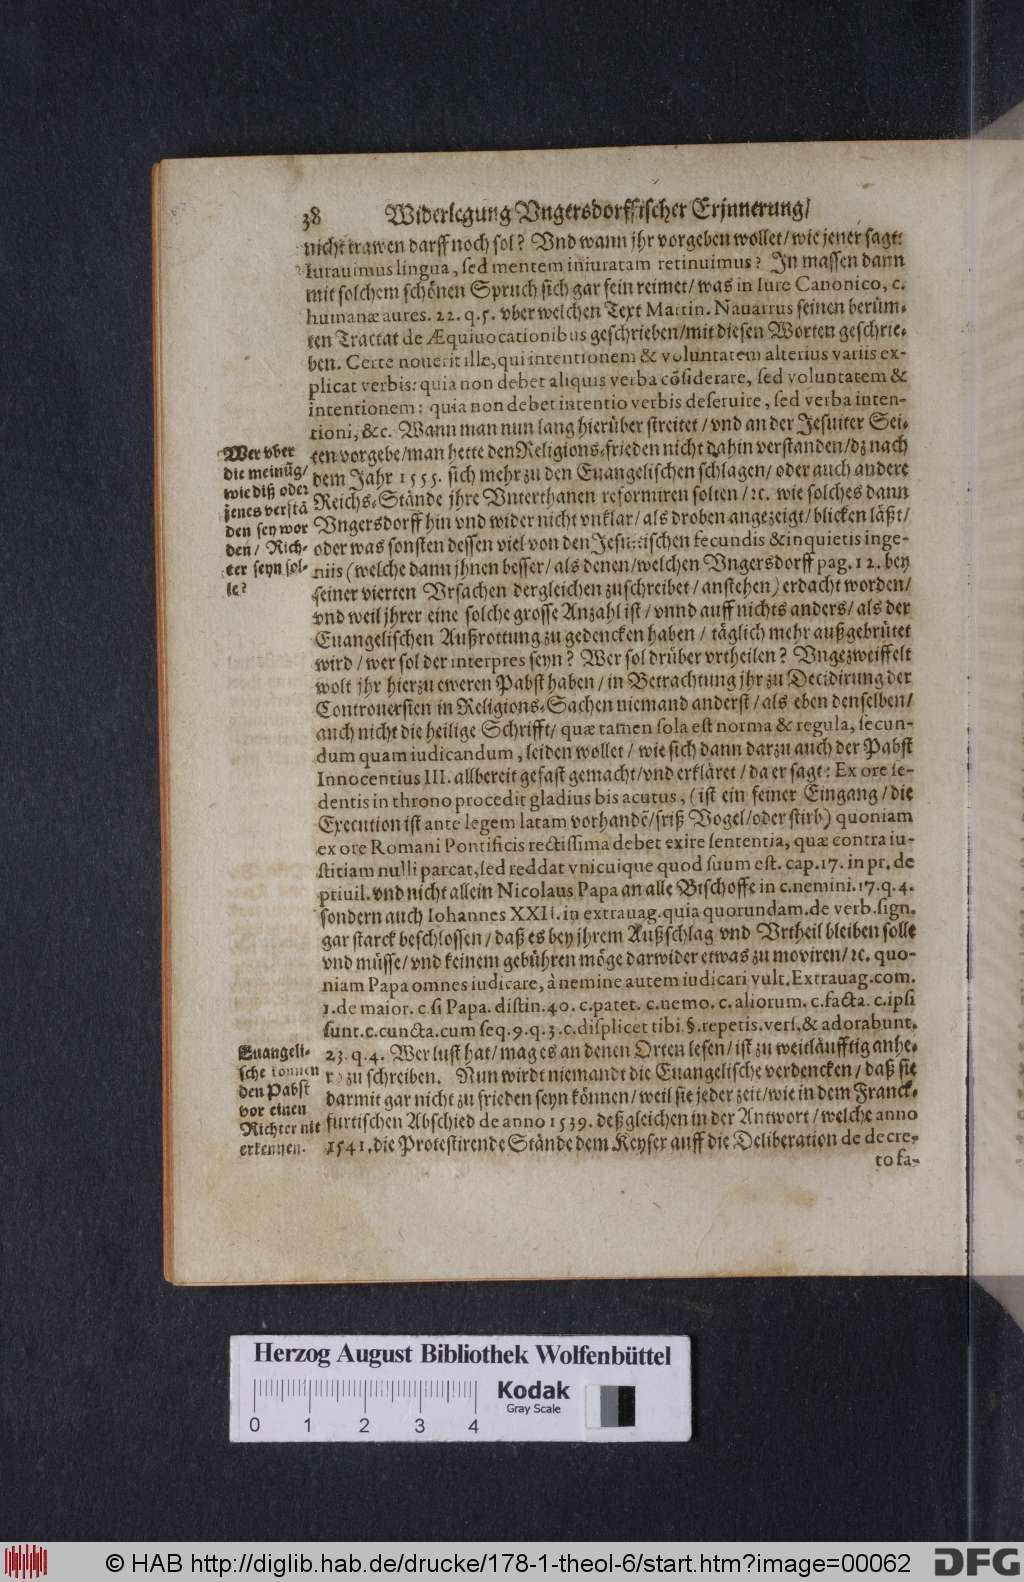 38 Widerlegung Vngersdorffischer Erjnnerung/
nicht trawen darff noch sol? Vnd wann jhr vorgeben wollet/ wie jener sagt:
Iurauimus lingua, sed mentem iniuratam retinuimus? In massen dann
mit solchem schönen Spruch sich gar fein reimet/ was in Iure Canonico, c.
humanæ aures. 22. q. 5. vber welchen Text Martin. Nauarrus seinen berüm-
ten Tractat de Æquiuocationibus geschrieben/ mit diesen Worten geschrie-
ben. Certe nouerit illæ, qui intentionem & voluntatem alterius variis ex-
plicat verbis: quia non debet aliquis verba cõsiderare, sed voluntatem &
intentionem: quia non debet intentio verbis deseruire, sed verba inten-
tioni, &c. Wann man nun lang hierüber streitet/ vnd an der Jesuiter Sei-
ten vorgebe/ man hette den Religions-frieden nicht dahin verstanden/ dz nach
dem Jahr 1555. sich mehr zu den Euangelischen schlagen/ oder auch andere
Reichs-Stände jhre Vnterthanen reformiren solten/ ꝛc. wie solches dann
Vngersdorff hin vnd wider nicht vnklar/ als droben angezeigt/ blicken läßt/
oder was sonsten dessen viel von den Jesuitischen fecundis & inquietis inge-
niis (welche dann jhnen besser/ als denen/ welchen Vngersdorff pag. 12. bey
seiner vierten Vrsachen dergleichen zuschreibet/ anstehen) erdacht worden/
vnd weil jhrer eine solche grosse Anzahl ist/ vnnd auff nichts anders/ als der
Euangelischen Außrottung zu gedencken haben/ täglich mehr außgebrütet
wird/ wer sol der interpres seyn? Wer sol drüber vrtheilen? Vngezweiffelt
wolt jhr hierzu eweren Pabst haben/ in Betrachtung jhr zu Decidirung der
Controuersien in Religions-Sachen niemand anderst/ als eben denselben/
auch nicht die heilige Schrifft/ quæ tamen sola est norma & regula, secun-
dum quam iudicandum, leiden wollet/ wie sich dann darzu auch der Pabst
Innocentius III. allbereit gefast gemacht/ vnd erkläret/ da er sagt: Ex ore se-
dentis in throno procedit gladius bis acutus, (ist ein feiner Eingang/ die
Execution ist ante legem latam vorhandẽ/ friß Vogel/ oder stirb) quoniam
ex ore Romani Pontificis rectissima debet exire sententia, quæ contra iu-
stitiam nulli parcat, sed reddat vnicuique quod suum est. cap. 17. in pr. de
priuil. vnd nicht allein Nicolaus Papa an alle Bischoffe in c. nemini. 17. q. 4.
sondern auch Iohannes XXII. in extrauag. quia quorundam. de verb. sign.
gar starck beschlossen/ daß es bey jhrem Außschlag vnd Vrtheil bleiben solle
vnd müsse/ vnd keinem gebühren möge darwider etwas zu moviren/ ꝛc. quo-
niam Papa omnes iudicare, à nemine autem iudicari vult. Extrauag. com.
1. de maior. c. si Papa. distin. 40. c. patet. c. nemo. c. aliorum. c. facta. c. ipsi
sunt. c. cuncta. cum seq. 9. q. 3. c. displicet tibi §. repetis. vers. & adorabunt.
23. q. 4. Wer lust hat/ mag es an denen Orten lesen/ ist zu weitläufftig anhe-
ro zu schreiben. Nun wirdt niemandt die Euangelische verdencken/ daß sie
darmit gar nicht zu frieden seyn können/ weil sie jeder zeit/ wie in dem Franck-
furtischen Abschied de anno 1539. deßgleichen in der Antwort/ welche anno
1541. die Protestirende Stände dem Keyser auff die Deliberation de decre-
to fa-
Wer vber
die meinũg/
wie diß oder
jenes verstã
den sey wor
den/ Rich-
ter seyn sol-
le?
Euangeli-
sche können
den Pabst
vor einen
Richter nit
erkennen.
Herzog August Bibliothek Wolfenbüttel
Kodak
Gray Scale
0 1 2 3 4
© HAB http://diglib.hab.de/drucke/178-1-theol-6/start.htm?image=00062
DFG